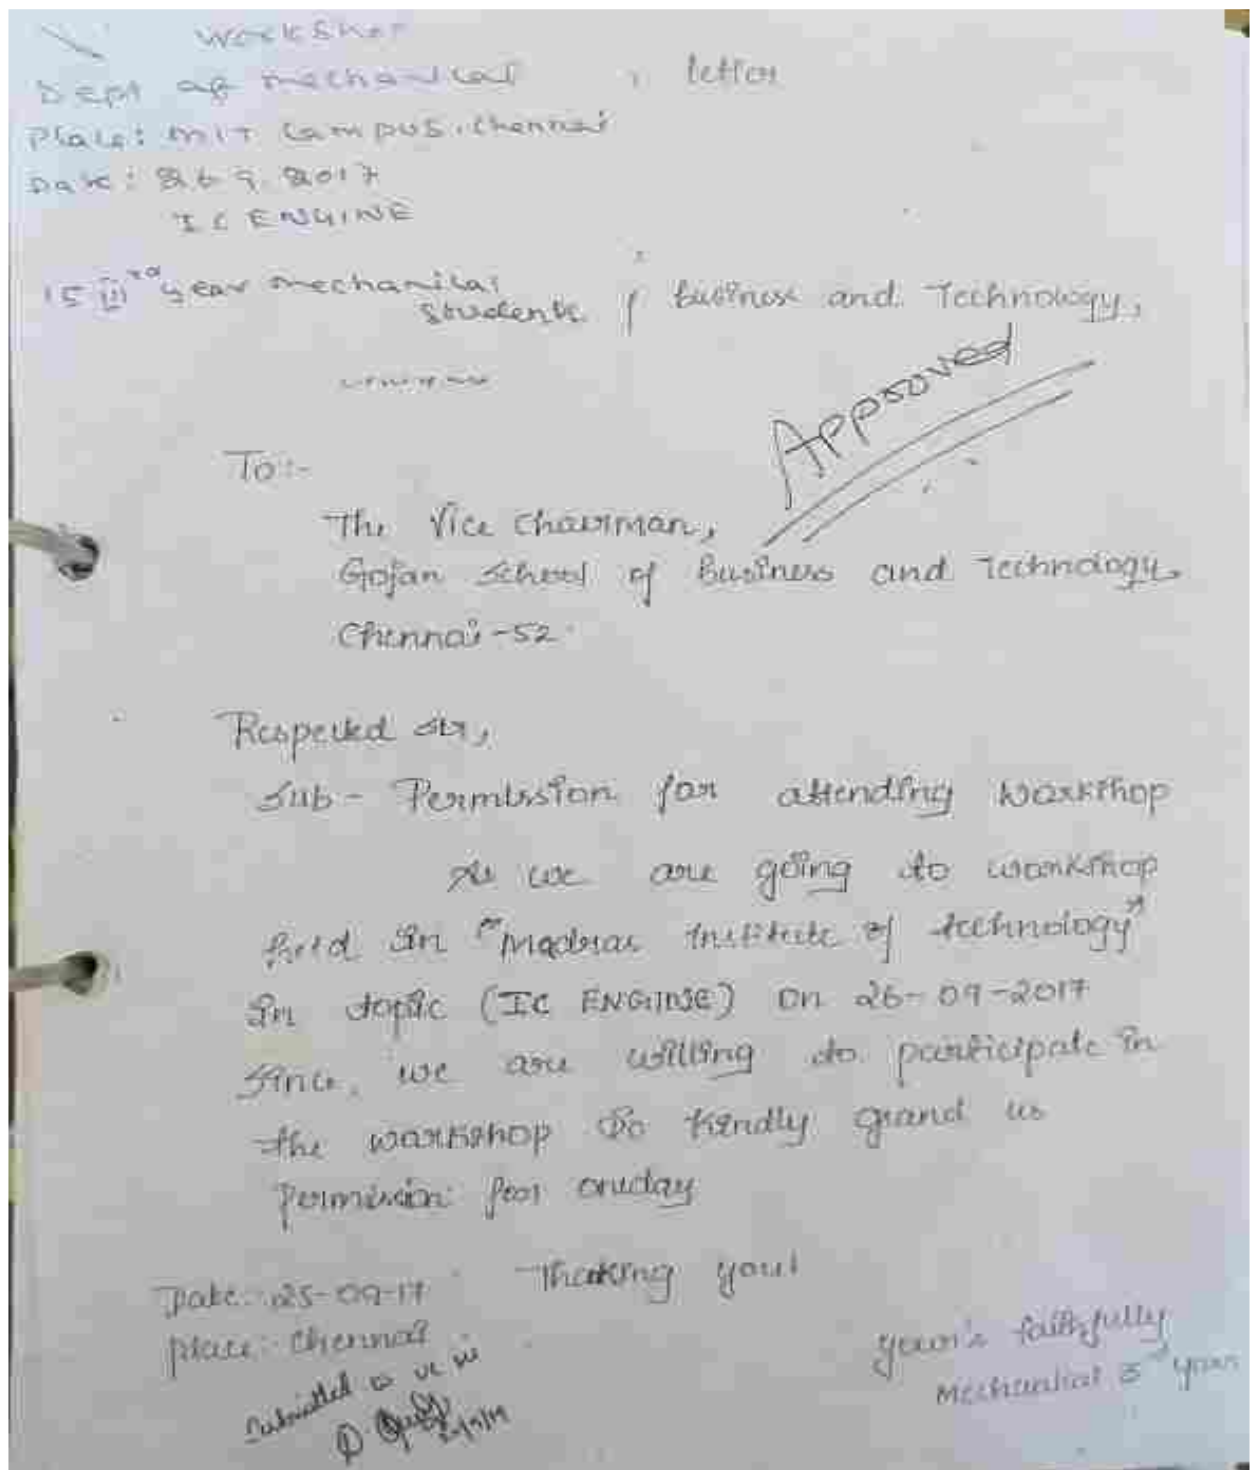 Workshop
Dept of mechanical
letter
Place: MIT Campus, Chennai
Date: 26 9. 2017
IC ENGINE
15 III rd year mechanical
students
business and Technology,
Approved
To:-
The Vice Chairman,
Gojan School of Business and Technology,
Chennai-52.
Respected sir,
Sub- Permission for attending workshop
As we are going to workshop
held in "Madras Institute of technology"
in topic (IC ENGINE) on 26-09-2017
since, we are willing to participate in
the workshop so kindly grand us
Permission for oneday
Thanking you!
Date: 25-09-17
Place: Chennai
Submitted to
your's faithfully
Mechanical 3rd year